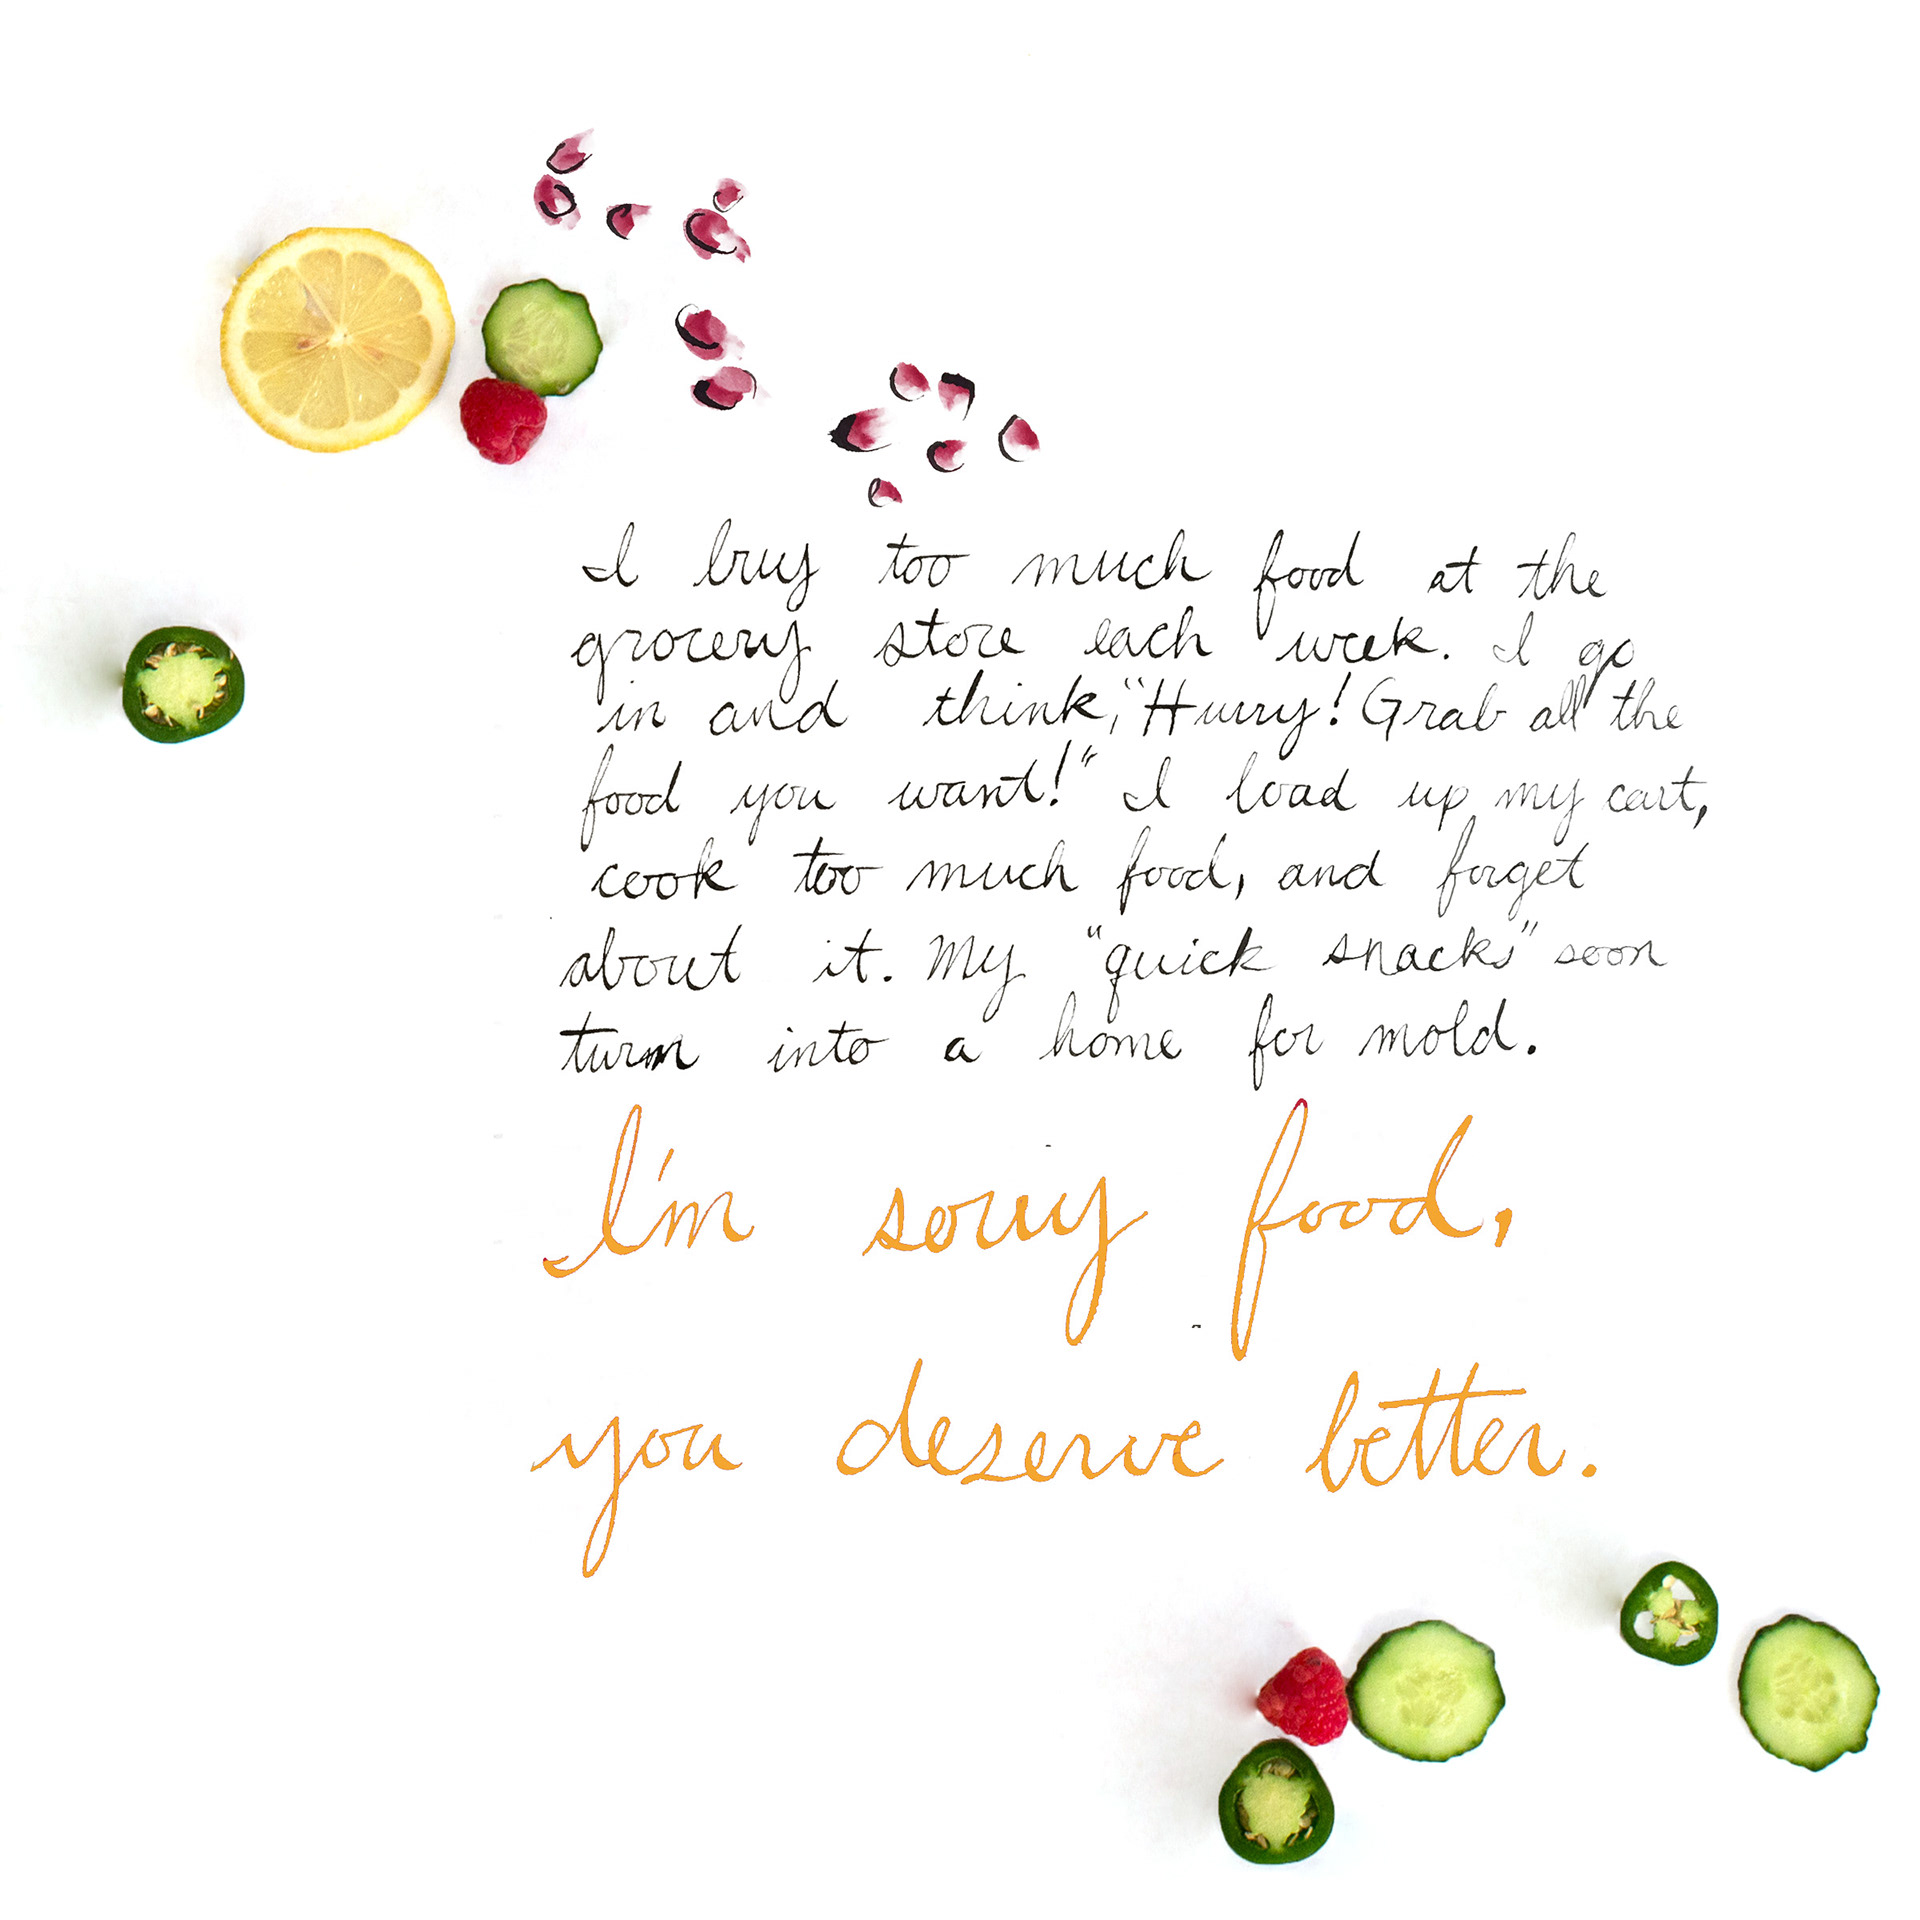 I buy too much food at the
grocery store each week. I go
in and think, "Hurry! Grab all the
food you want!" I load up my cart,
cook too much food, and forget
about it. My "quick snacks" soon
turn into a home for mold.
I'm sorry food,
you deserve better.